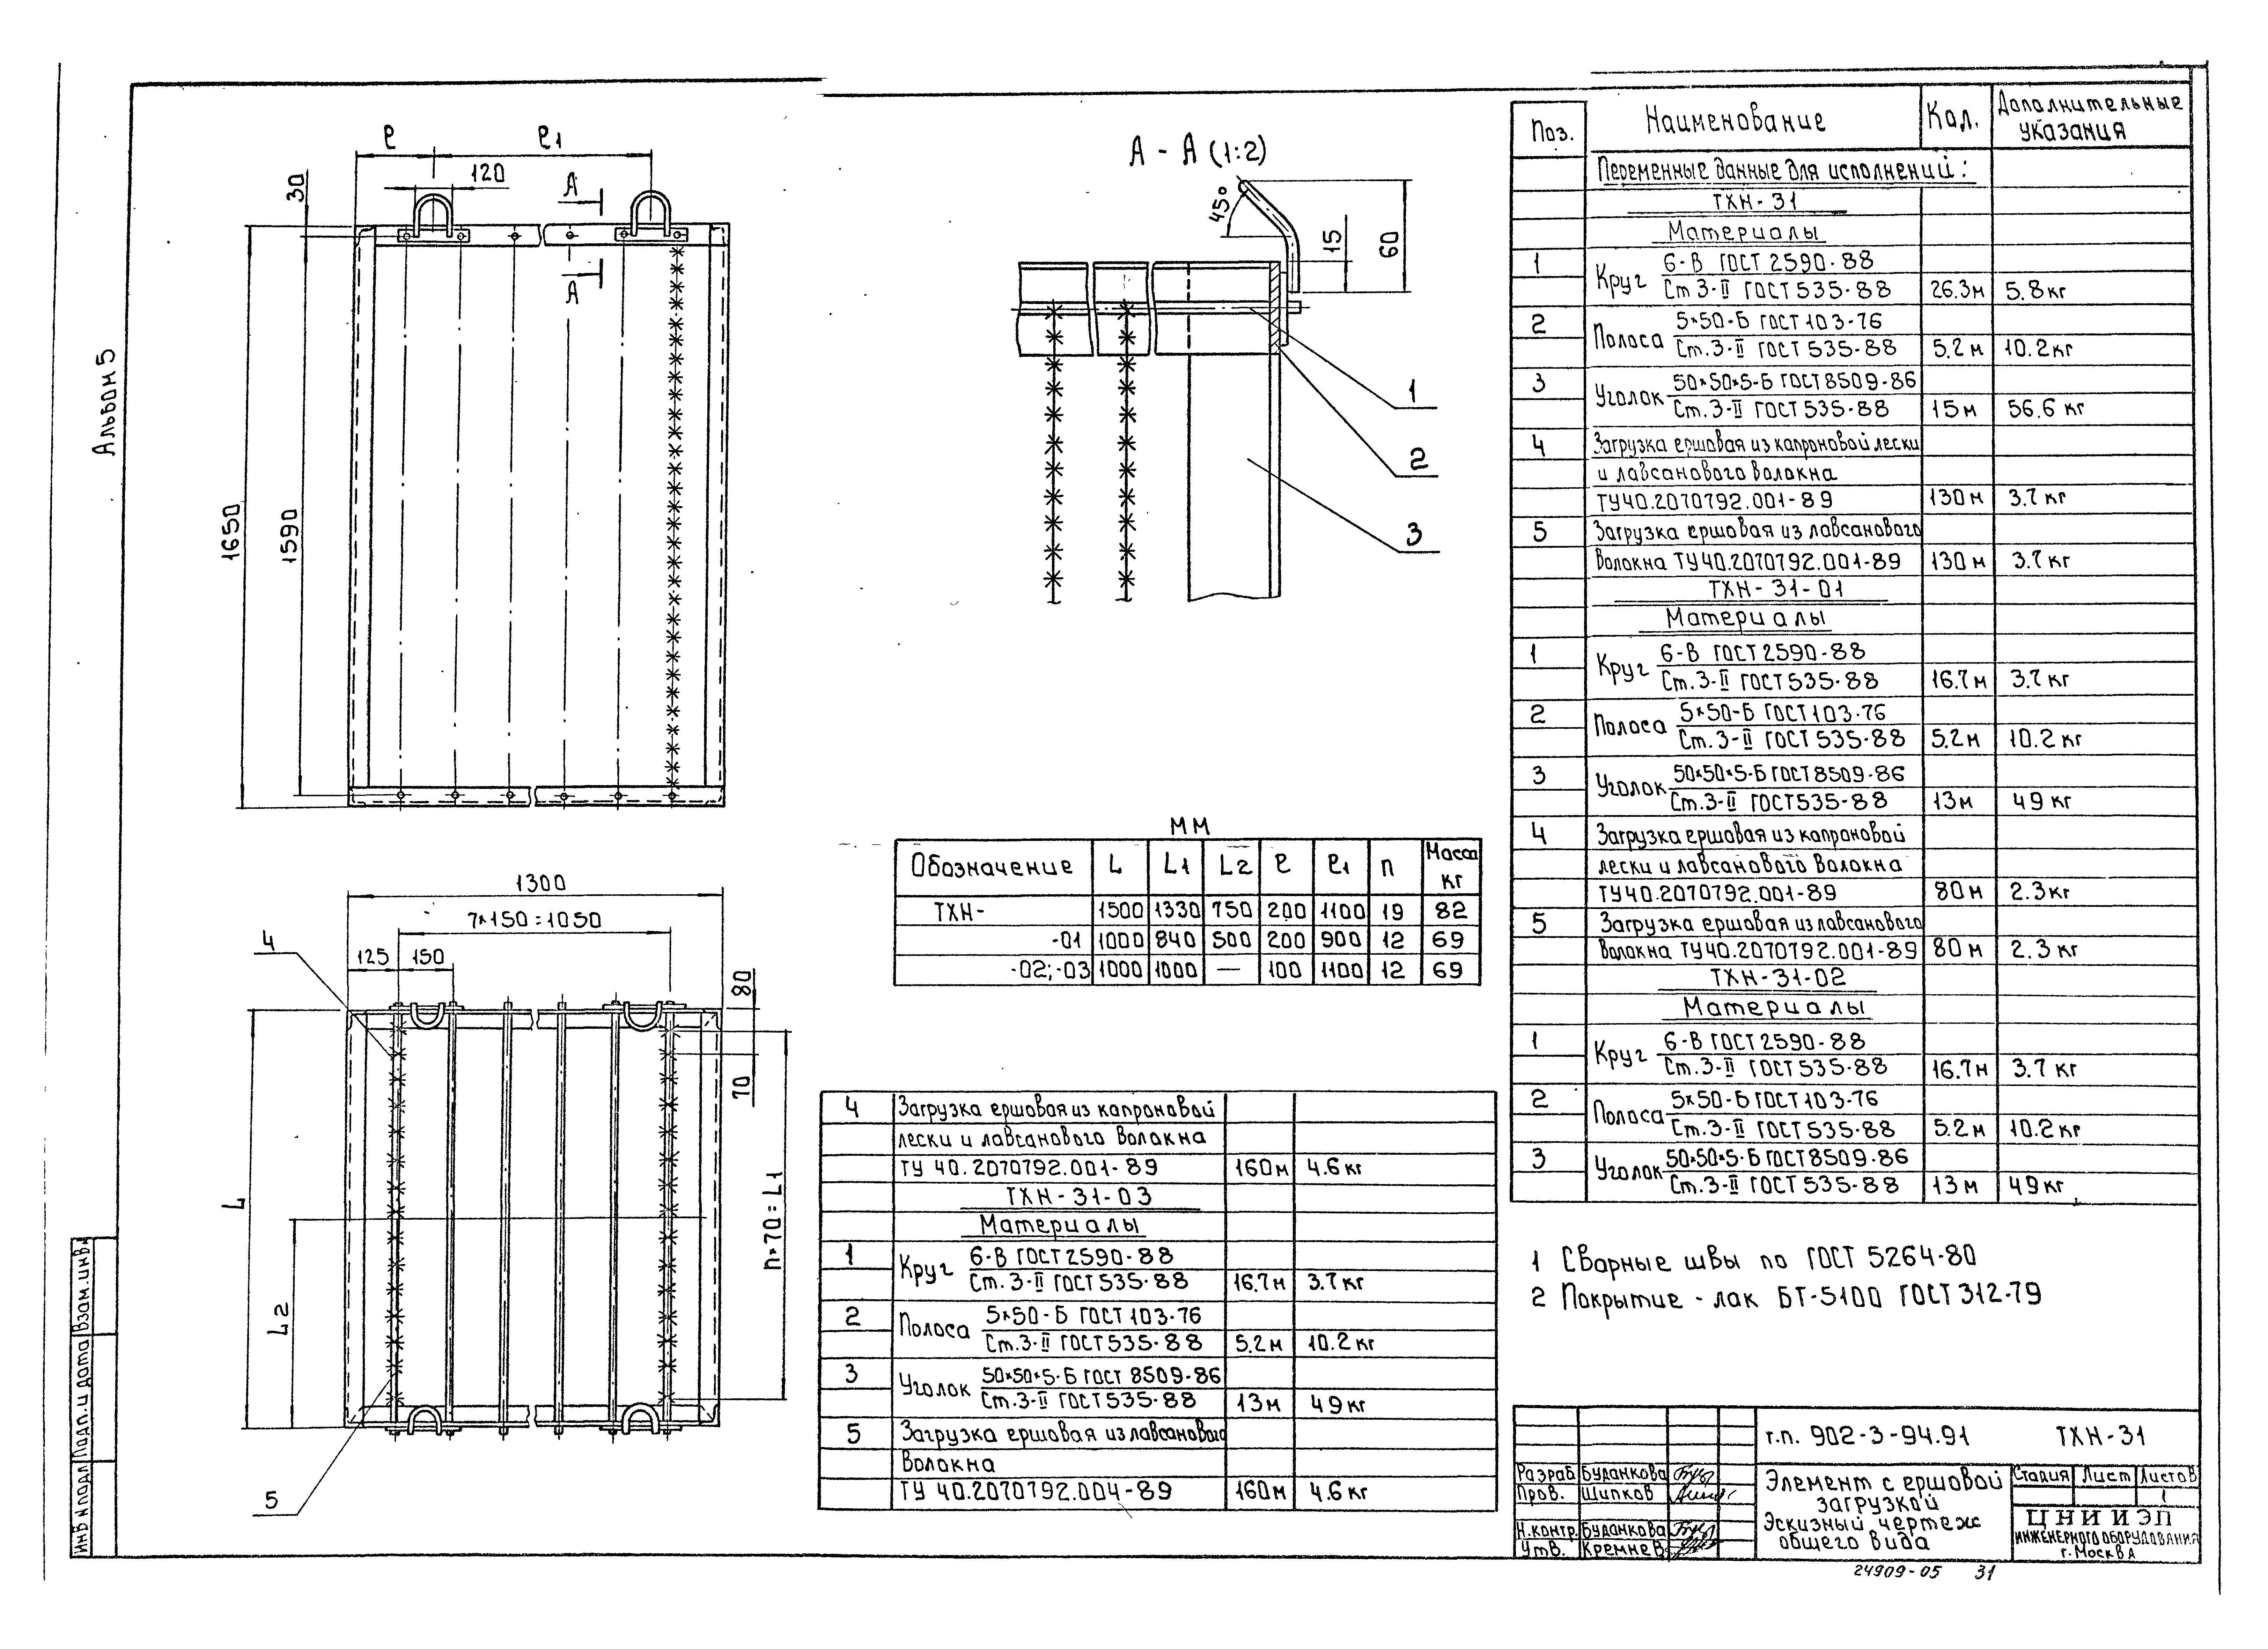 Альбом 5
ℓ
ℓ1
120
30
А
А
1650
1590
А - А (1:2)
45°
15
60
1
2
3
1300
7×150=1050
125
150
80
70
4
5
L
L2
n×70=L1
мм
Обозначение L L1 L2 ℓ ℓ1 n Масса кг
ТХН- 1500 1330 750 200 1100 19 82
-01 1000 840 500 200 900 12 69
-02;-03 1000 1000 — 100 1100 12 69
4 Загрузка ершовая из капроновой
лески и лавсанового волокна
ТУ 40.2070792.001-89 160м 4.6 кг
ТХН-31-03
Материалы
1 Круг 6-В ГОСТ 2590-88
Ст.3-II ГОСТ 535-88 16.7м 3.7 кг
2 Полоса 5×50-Б ГОСТ 103-76
Ст.3-II ГОСТ 535-88 5.2м 10.2 кг
3 Уголок 50×50×5-Б ГОСТ 8509-86
Ст.3-II ГОСТ 535-88 13м 49 кг
5 Загрузка ершовая из лавсанового
волокна
ТУ 40.2070792.004-89 160м 4.6 кг
Поз. Наименование Кол. Дополнительные указания
Переменные данные для исполнений:
ТХН-31
Материалы
1 Круг 6-В ГОСТ 2590-88
Ст 3-II ГОСТ 535-88 26.3м 5.8 кг
2 Полоса 5×50-Б ГОСТ 103-76
Ст.3-II ГОСТ 535-88 5.2 м 10.2 кг
3 Уголок 50×50×5-Б ГОСТ 8509-86
Ст.3-II ГОСТ 535-88 15м 56.6 кг
4 Загрузка ершовая из капроновой лески
и лавсанового волокна
ТУ40.2070792.001-89 130м 3.7 кг
5 Загрузка ершовая из лавсанового
волокна ТУ40.2070792.001-89 130м 3.7 кг
ТХН-31-01
Материалы
1 Круг 6-В ГОСТ 2590-88
Ст.3-II ГОСТ 535-88 16.7м 3.7 кг
2 Полоса 5×50-Б ГОСТ 103-76
Ст.3-II ГОСТ 535-88 5.2м 10.2 кг
3 Уголок 50×50×5-Б ГОСТ 8509-86
Ст.3-II ГОСТ 535-88 13м 49 кг
4 Загрузка ершовая из капроновой
лески и лавсанового волокна
ТУ40.2070792.001-89 80м 2.3 кг
5 Загрузка ершовая из лавсанового
волокна ТУ40.2070792.001-89 80м 2.3 кг
ТХН-31-02
Материалы
1 Круг 6-В ГОСТ 2590-88
Ст.3-II ГОСТ 535-88 16.7м 3.7 кг
2 Полоса 5×50-Б ГОСТ 103-76
Ст.3-II ГОСТ 535-88 5.2 м 10.2 кг
3 Уголок 50×50×5-Б ГОСТ 8509-86
Ст.3-II ГОСТ 535-88 13м 49 кг
1 Сварные швы по ГОСТ 5264-80
2 Покрытие - лак БТ-5100 ГОСТ 312-79
т.п. 902-3-94.91 ТХН-31
Разраб. Буданкова
Пров. Шипков
Н.контр. Буданкова
Утв. Кремнев
Элемент с ершовой
загрузкой
Эскизный чертеж
общего вида
Стадия Лист Листов
1
ЦНИИЭП
ИНЖЕНЕРНОГО ОБОРУДОВАНИЯ
г. Москва
24909-05 31
Инв N подл Подп. и дата Взам.инв.